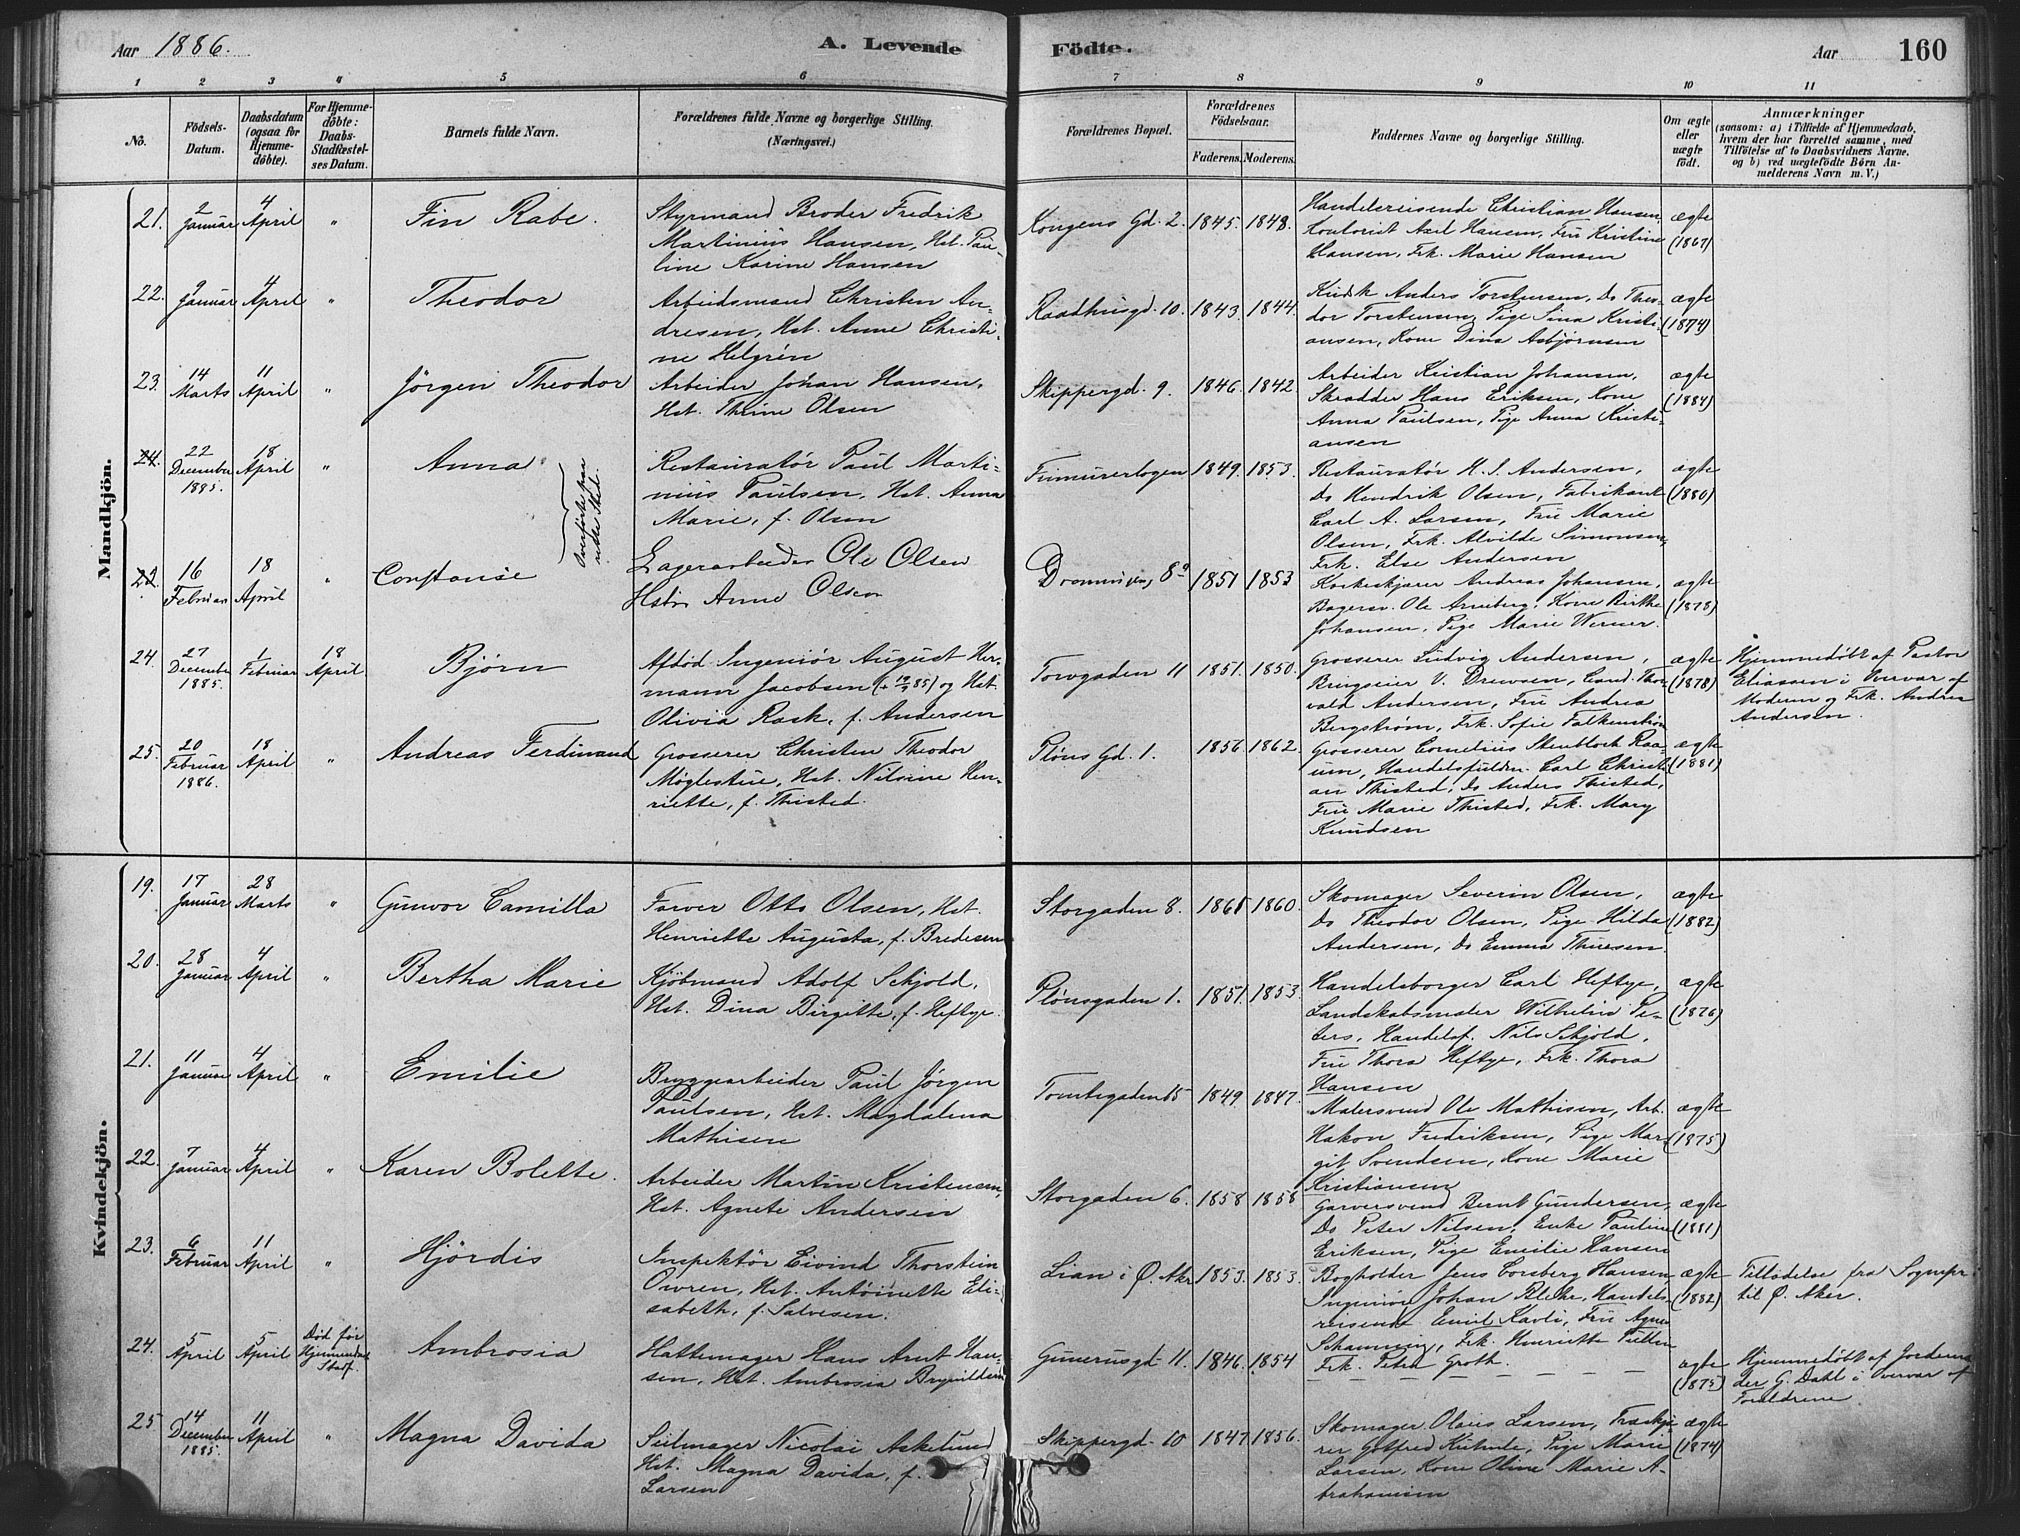 Aar 1886.
A. Levende Födte.
Aar
160
1 2 3 4 5 6 7 8 9 10 11
No.
Födsels-Datum.
Daabsdatum (ogsaa for Hjemmedöbte).
For Hjemmedöbte: Daabs-Stadfæstelses Datum.
Barnets fulde Navn.
Forældrenes fulde Navne og borgerlige Stilling. (Næringsvei.)
Forældrenes Bopæl.
Forældrenes Födselsaar.
Faderens. Moderens.
Faddernes Navne og borgerlige Stilling.
Om ægte eller uægte födt.
Anmærkninger
(saasom: a) i Tilfælde af Hjemmedaab, hvem der har forrettet samme, med Tilföielse af to Daabsvidners Navne. og b) ved uægtefödte Börn Anmelderens Navn m. V.)
Mandkjön.
21. 2 Januar 4 April " Fin Rabe. Styrmand Broder Fredrik
Martinius Hansen, Hst. Pauline Karine Hansen
Kongens Gd. 2. 1845. 1848.
Handelsreisende Christian Hansen,
Kontorist Axel Hansen, Fru Kristine
Hansen, Frk. Marie Hansen
ægte (1867)
22. 9 Januar 4 April " Theodor Arbeidsmand Christen Andresen, Hst. Anne Christine Helgrén
Raadhusgd. 10. 1843. 1844.
Kudsk Anders Torstensen, Do Theodor Torstensen, Pige Sina Kristiansen, Kone Dina Asbjørnsen
ægte (1874)
23. 14 Marts 11 April " Jörgen Theodor Arbeider Johan Hansen,
Hst. Thrine Olsen
Skippergd. 9. 1846. 1842
Arbeider Kristian Johansen,
Skrædder Hans Eriksen, Kone
Anna Paulsen, Pige Anna Kristiansen
ægte (1884)
24. 22 December 1885. 18 April " Anna Restauratör Paul Martinius Paulsen, Hst. Anna
Marie, f. Olsen
Overförte paa rette Sted.
Frimurerlogen 1849. 1853.
Restauratør H. S. Andersen,
Do Hendrik Olsen, Fabrikant
Carl A. Larsen, Fru Marie
Olsen, Frk. Alvilde Simonsen,
Frk. Else Andersen
ægte (1880)
16 Februar 18 April " Constanse Lagerarbeider Ole Olsen
Hstr Anne Olsen
1851 1853
Korkeskjærer Andreas Johansen,
Bagersv. Ole Arneberg, Kone Birthe
Johansen, Pige Marie Werner.
ægte (1878)
24. 27 December 1885. 1 Februar 18 April Bjørn Afdød Ingeniør August Hermann Jacobsen († 19/9 85) og Hst.
Olivia Rask, f. Andersen
Torvgaden 11 1851. 1850.
Grosserer Ludvig Andersen,
Brugseier V. Drewsen, Cand. Thorvald Andersen, Fru Andrea
Bergstrøm, Frk. Sofie Falkenstrøm
ægte (1878)
Hjemmedöbt af Pastor
Eliassen i Overvær af
Moderen og Frk. Andrea
Andersen.
25. 20 Februar 1886. 18 April " Andreas Ferdinand Grosserer Christen Theodor
Møglestue, Hst. Nilsine Henriette, f. Thisted.
Pløens Gd. 1. 1856 1862.
Grosserer Cornelius Stenbloch Raaum, Handelsfuldm. Carl Christian Thisted, Do Anders Thisted,
Fru Marie Thisted, Frk. Mary
Knudsen
ægte (1881)
Kvindekjön.
19. 17 Januar 28 Marts " Gunvor Camilla Farver Otto Olsen, Hst.
Henriette Augusta, f. Bredesen
Storgaden 8. 1860.
Skomager Severin Olsen,
Do Theodor Olsen, Pige Hilda
Andersen, Do Emma Thuesen.
ægte (1882)
20. 28 Januar 4 April " Bertha Marie Kjöbmand Adolf Schjold,
Hst. Dina Birgitte, f. Heftye.
Pløensgaden 1. 1851. 1853.
Handelsborger Carl Heftye,
Landskabsmaler Wilhelm Peters, Handelsf. Nils Schjold,
Fru Thora Heftye, Frk. Thora
Hansen
ægte (1876)
21. 11 Januar 4 April " Emilie Bryggearbeider Paul Jörgen
Paulsen, Hst. Magdalena
Mathisen
Tomtegaden 15 1849. 1847.
Malersvend Ole Mathisen, Arb.
Hakon Fredriksen, Pige Margit Svendsen, Kone Marie
Kristiansen
ægte (1875)
22. 7 Januar 4 April " Karen Bolette. Arbeider Martin Kristensen,
Hst. Agnete Andersen
Storgaden 6. 1858 1858
Garversvend Bernt Gundersen,
Do Peter Nilsen, Enke Pauline
Eriksen, Pige Emilie Hansen
ægte (1881)
23. 6 Februar 11 April " Hjördis Inspektör Eivind Thorstein
Owren, Hst. Antoinette Elisabeth, f. Salvesen.
Lian i Ø. Aker 1853. 1853.
Bogholder Jens Corsberg Hansen,
Ingeniør Johan Blehr, Handelsreisende Emil Kavli, Fru Agnes
Frk. Henriette
Frk. Petra Groth.
ægte (1882)
Tilladelse fra Sognepr.
til Ø. Aker.
24. 5 April 5 April Død før Hjemmedaab. Stadf. Ambrosia Hattemager Hans Arnt Hansen, Hst. Ambrosia Brynildsen
Gunerusgd. 11. 1846. 1854
ægte (1875)
Hjemmedöbt af Jordemoder G. Dahl i Overvær af
Forældrene
25 14 December 1885. 11 April " Magna Davida Seilmager Nicolai Askelund
Hst. Magna Davida, f.
Larsen
Skippergd. 10 1847. 1856.
Skomager Olaus Larsen, Træskjærer Gotfred Kuhnle, Pige Marie
Larsen, Kone Oline Marie Abrahamsen
ægte (1874)